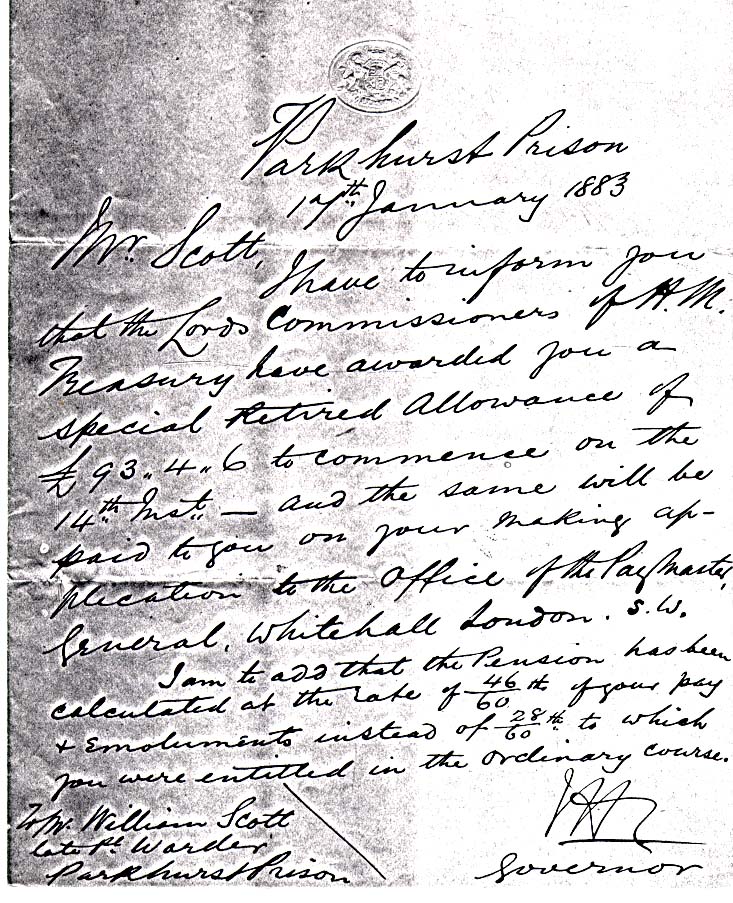 Parkhurst Prison
17th January 1883
Mr. Scott,
I have to inform you
that the Lords Commissioners of H.M.
Treasury have awarded you a
special Retired Allowance of
£93.,4.,6 to commence on the
14th Inst. — and the same will be
paid to you on your making ap-
plication to the Office of the PayMaster
General, Whitehall London. S.W.
I am to add that the Pension has been
calculated at the rate of 46/60 th of your pay
& Emoluments instead of 28/60 th to which
you were entitled in the ordinary course.
To Mr. William Scott
late Pl. Warder
Parkhurst Prison
Governor